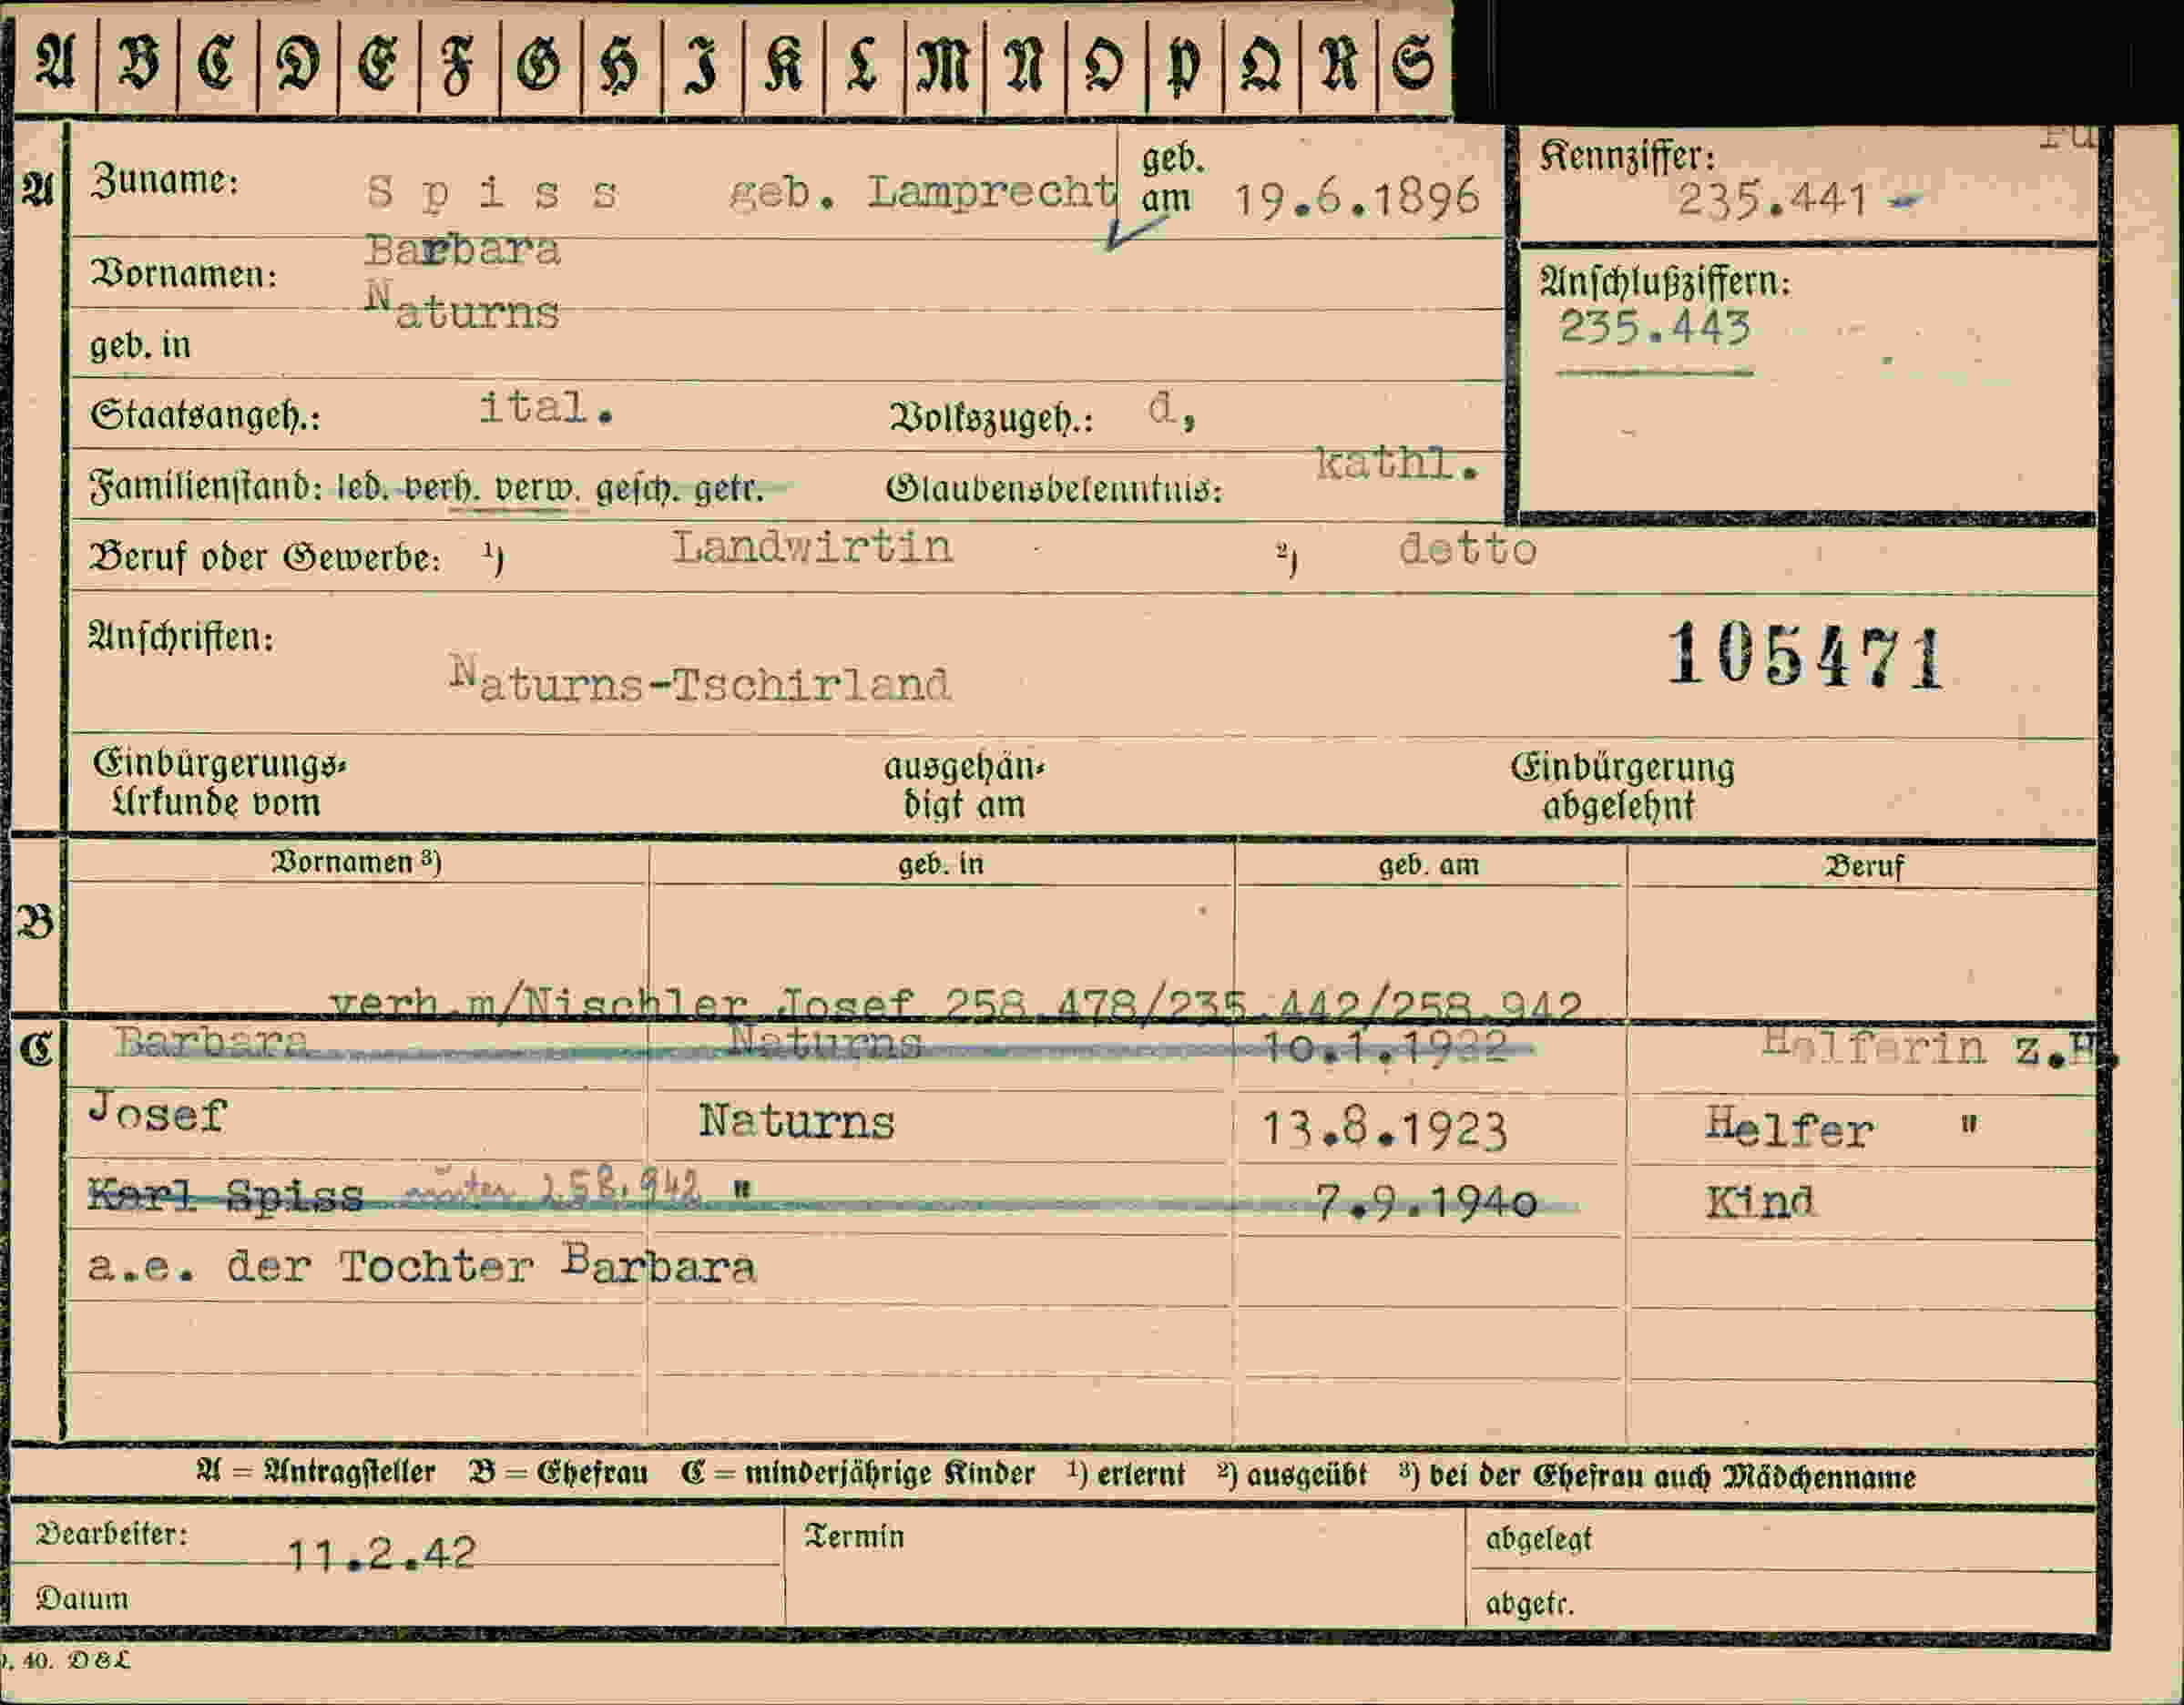 A B C D E F G H I K L M N O P Q R S
A Zuname: Spiss geb. Lamprecht geb. am 19.6.1896 Kennziffer: 235.441
Vornamen: Barbara Anschlußziffern:
geb. in Naturns 235.443
Staatsangeh.: ital. Volkszugeh.: d,
Familienstand: led. verh. verw. gesch. getr. Glaubensbekenntnis: kathl.
Beruf oder Gewerbe: ¹) Landwirtin ²) detto
Anschriften:
Naturns-Tschirland 105471
Einbürgerungs- ausgehän- Einbürgerung
Urkunde vom digt am abgelehnt
Vornamen ³) geb. in geb. am Beruf
B
verh.m/Nischler Josef 258.478/235.442/258.942
C Barbara Naturns 10.1.1922 Helferin z.H.
Josef Naturns 13.8.1923 Helfer "
Karl Spiss unter 258.942 " 7.9.1940 Kind
a.e. der Tochter Barbara
A = Antragsteller B = Ehefrau C = minderjährige Kinder ¹) erlernt ²) ausgeübt ³) bei der Ehefrau auch Mädchenname
Bearbeiter: 11.2.42 Termin abgelegt
Datum abgetr.
40. D&L